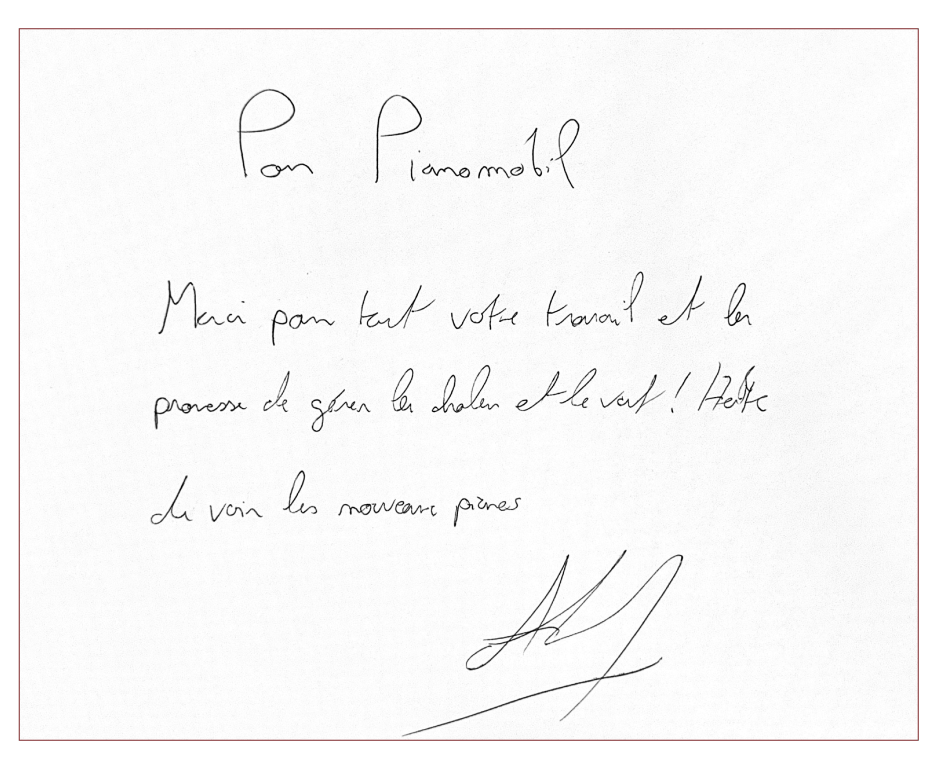 Pour Pianomobil
Merci pour tout votre travail et la
prouesse de gérer la chaleur et le vent ! Hâte
de voir les nouveaux pianos